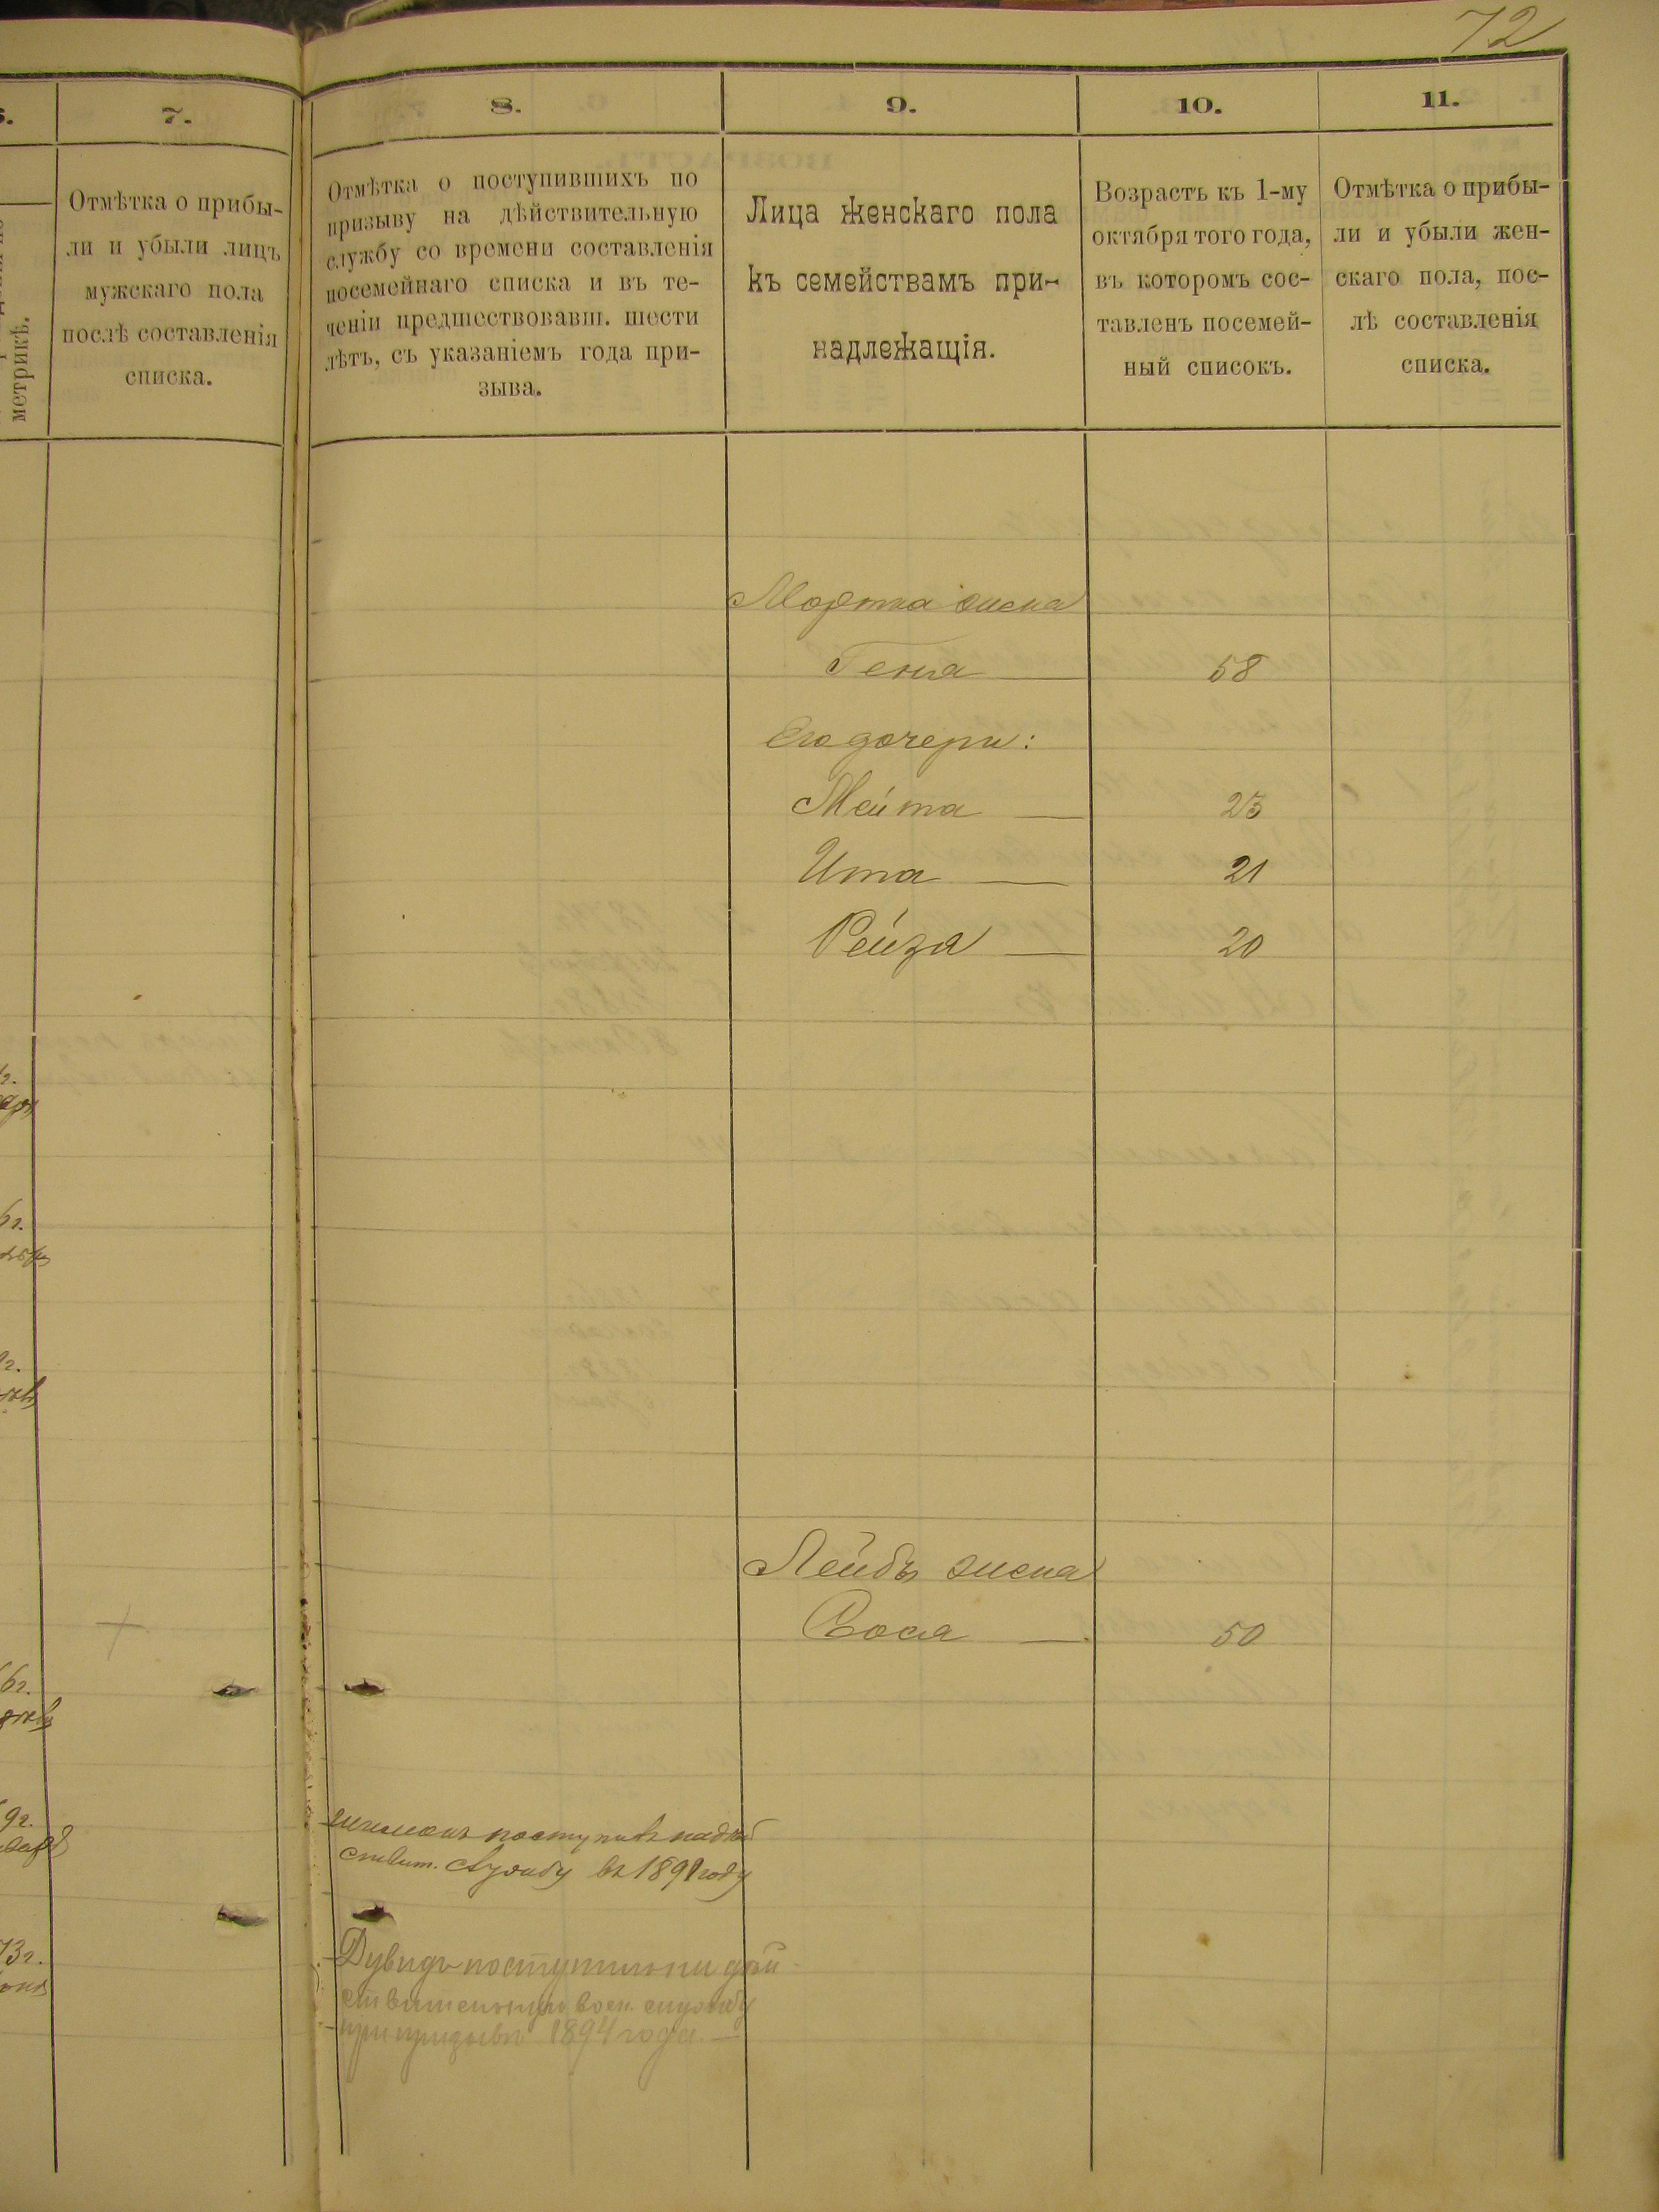 72
7.
8.
9.
10.
11.
метрикѣ.
Отмѣтка о прибы-
ли и убыли лицъ
мужскаго пола
послѣ составленія
списка.
Отмѣтка о поступившихъ по
призыву на дѣйствительную
службу со времени составленія
посемейнаго списка и въ те-
ченіи предшествовавш. шести
лѣтъ, съ указаніемъ года при-
зыва.
Лица женскаго пола
къ семействамъ при-
надлежащія.
Возрастъ къ 1-му
октября того года,
въ которомъ сос-
тавленъ посемей-
ный списокъ.
Отмѣтка о прибы-
ли и убыли жен-
скаго пола, пос-
лѣ составленія
списка.
жена
Геня — 58
Его дочери:
Мейта — 23
Ита — 21
Рейза — 20
Лейбъ жена
Сося — 50
поступилъ на дѣй
ствит. службу въ 1891 году
Дувидъ поступилъ на дѣй-
ствительную воен. службу
при призывѣ 1894 года. —
6г.
9г.
73г.